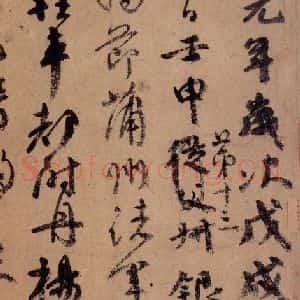 元年歲次戊戌
日壬申第十三從父叔銀
持節蒲州諸軍
輕車都尉丹楊